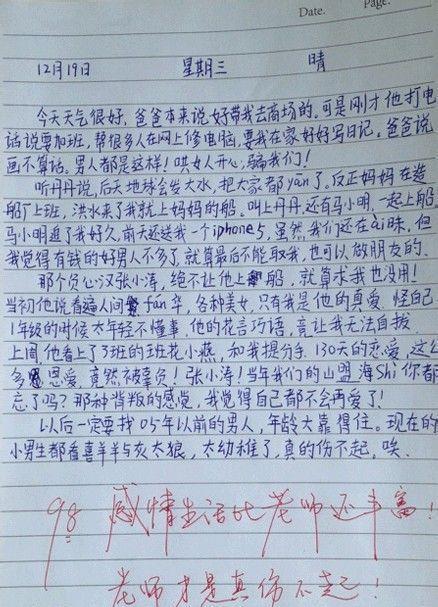 Date.
Page.
12月19日 星期三 晴
今天天气很好，爸爸本来说好带我去商场的。可是刚才他打电
话说要加班，帮很多人在网上修电脑，要我在家好好写日记。爸爸说
画不算话。男人都是这样！哄女人开心，骗我们！
听丹丹说，后天地球会发大水，把大家都yān了。反正妈妈在造
船厂上班，洪水来了我就上妈妈的船。叫上丹丹，还有马小明，一起上船。
马小明追了我好久，前天还送我一个iphone5，虽然我们还在ài昧，但
我觉得有钱的好男人不多了，就算最后不能取我，也可以做朋友的。
那个负心汉张小涛，绝不让他上船，就算求我也没用！
当初他说看遍人间fán华，各种美女，只有我是他的真爱，怪自己
1年级的时候太年轻不懂事，他的花言巧语，竟让我无法自拔
上周，他看上了3班的班花小燕，和我提分手，130天的恋爱，这么
多恩爱，竟然被辜负！张小涛！当年我们的山盟海Shì你都
忘了吗？那种背叛的感觉，我觉得自己都不会再爱了！
以后一定要找05年以前的男人，年龄大靠得住。现在的
小男生都看喜羊羊与灰太狼，太幼稚了，真的伤不起，唉。
98 感情生活比老师还丰富！
老师才是真伤不起！